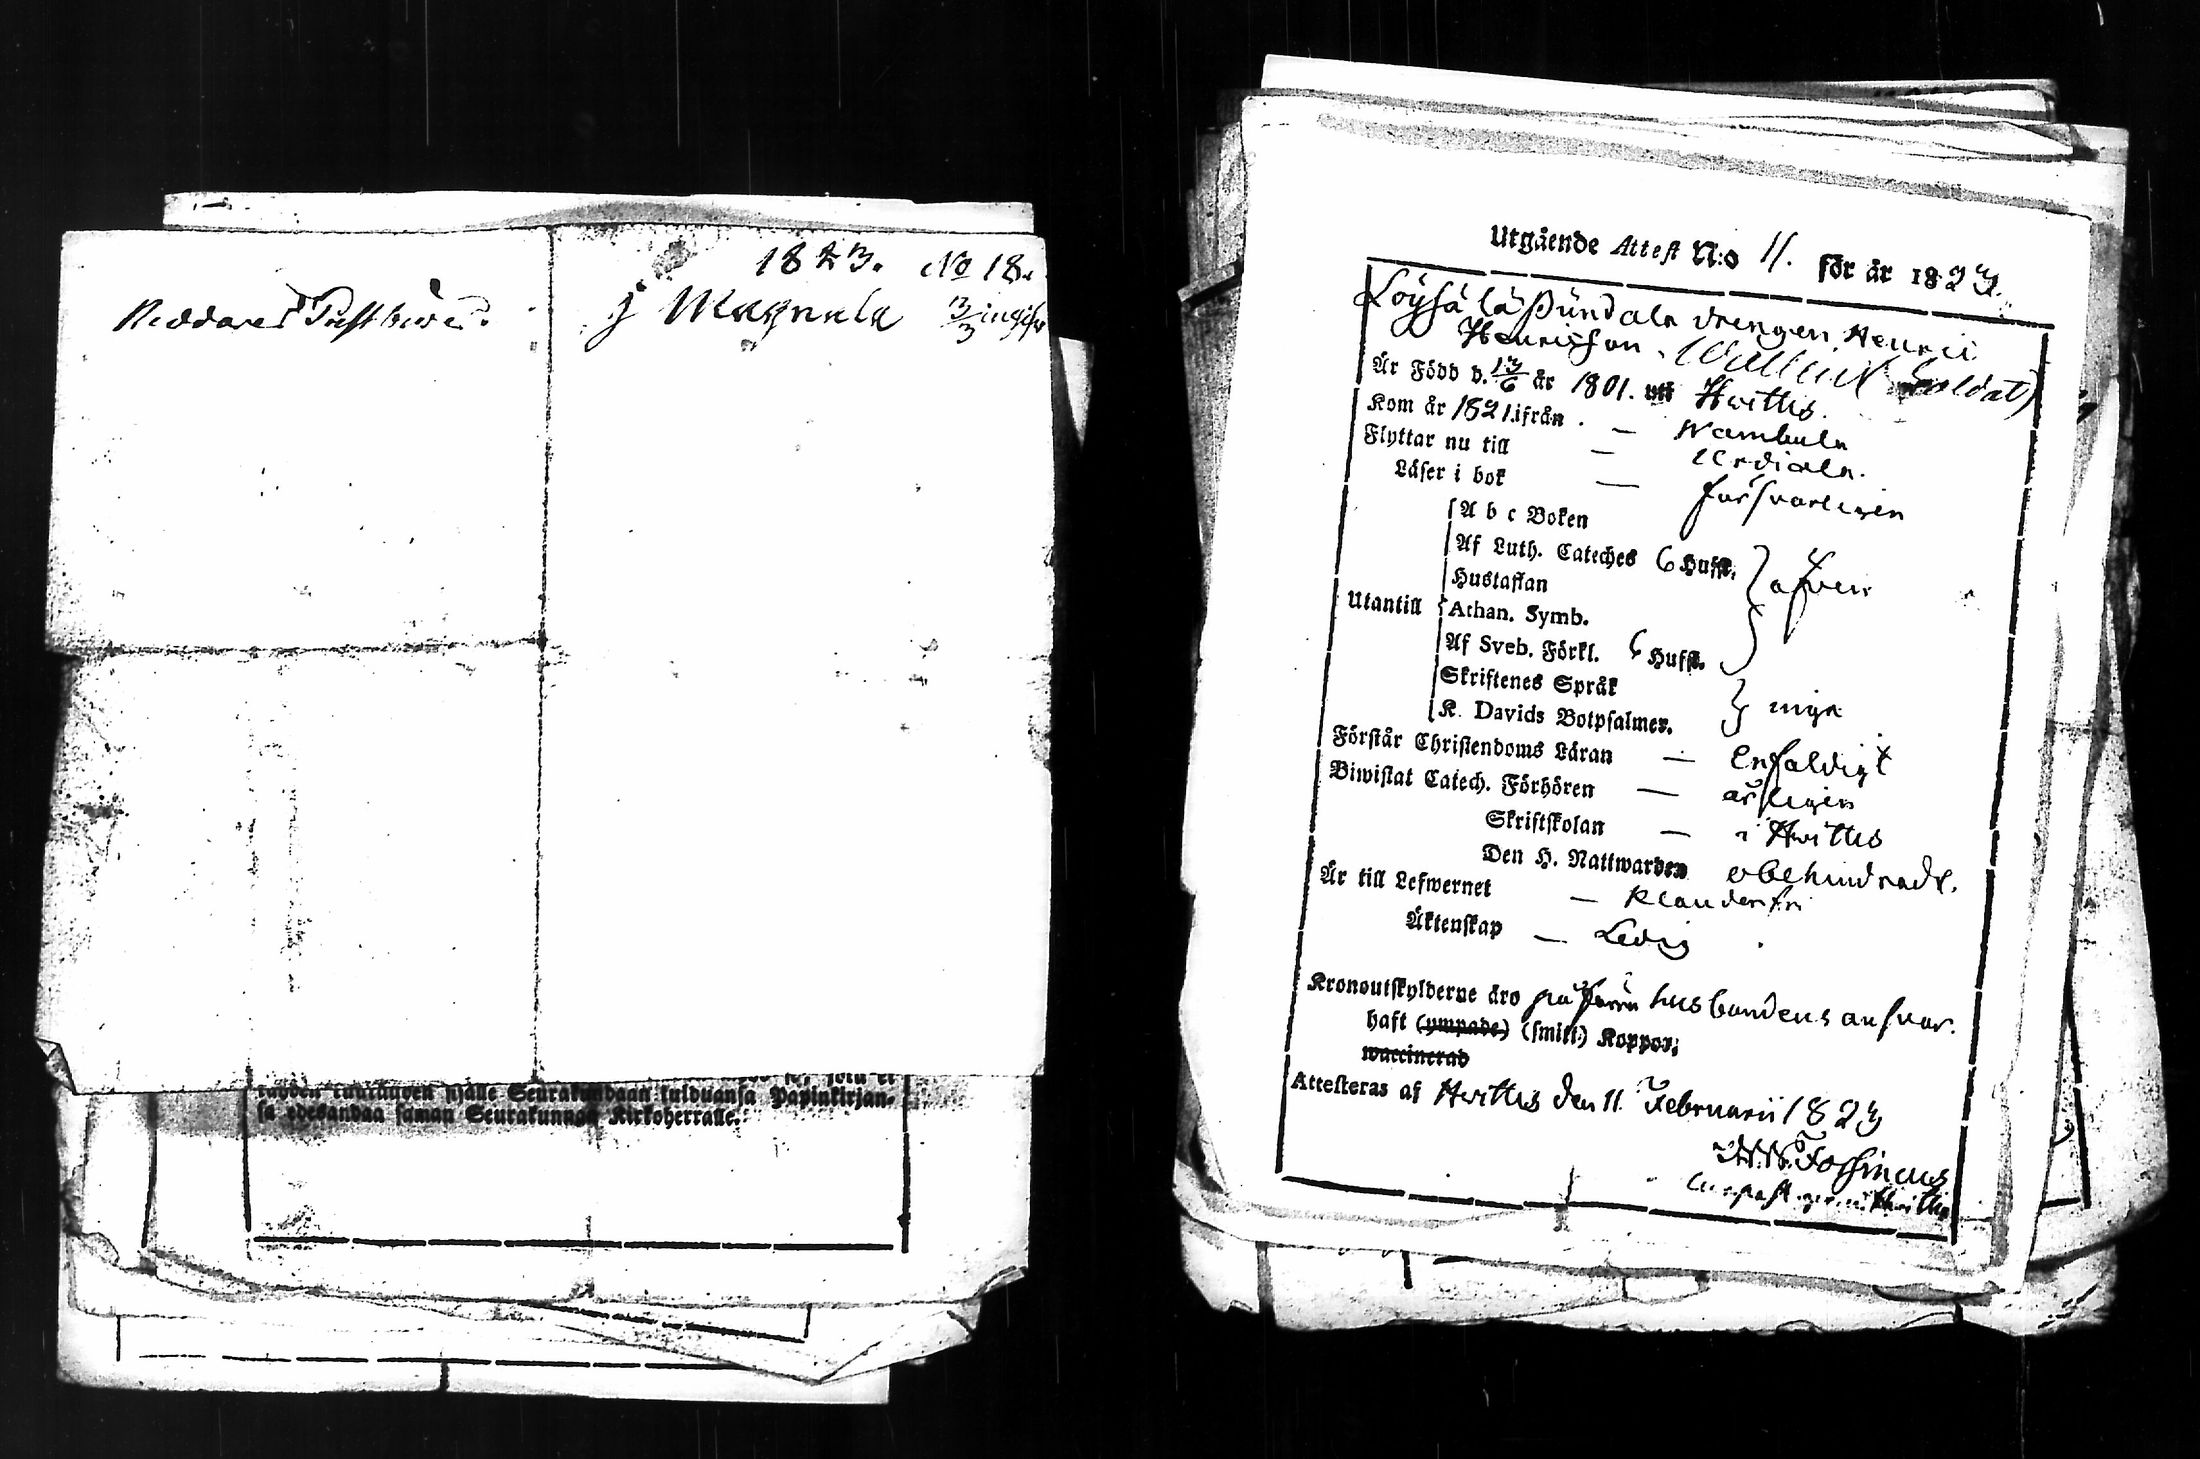 1823. No 18.
j Magnula 13/3 ingifv
Seurakundaan tulduansa Papinkirjan-
sa edesandaa saman Seurakunnan Kirkoherralle.
Utgående Attest N:o 11. för år 1823.
Löysälä drengen Henric
Henricsson. (Soldat)
Är Född d. 13/6 år 1801. uti Hvittis.
Kom år 1821. ifrån — Wambula
Flyttar nu till — Urdiala.
Läser i bok — försvarligen
A b c Boken
Af Luth. Cateches 6 Hufst. } äfven
Hustaflan
Utantill Athan. Symb.
Af Sveb. Förkl. 6 Hufst.
Skriftenes Språk
K. Davids Botpsalmer. } inga
Förstår Christendoms Läran — Enfaldigt
Biwistat Catech. Förhören — årligen
Skriftskolan — i Hvittis
Den H. Nattwarden obehindradt.
Är till Lefwernet — klanderfri
Äktenskap — Ledig
Kronoutskylderne äro på husbondens ansvar.
haft (ympade) (smitt.) Koppor;
waccinerad
Attesteras af Hvittis den 11. Februarii 1823